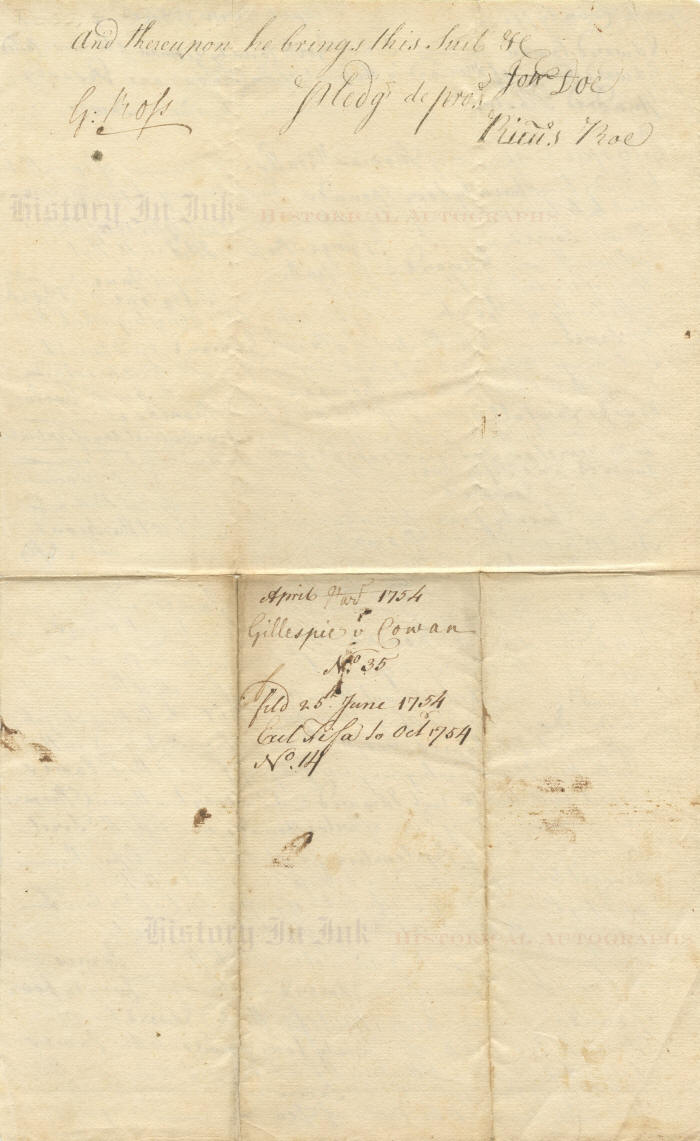 And thereupon he brings this Suit &c
Johñ Doe
G: Ross
Pledgs de pros
Ricũs Roe
History In Ink
HISTORICAL AUTOGRAPHS
April 1754
Gillespie v Cowan
No. 35
fild 25th June 1754
to Octr 1754
No. 14
History In Ink
HISTORICAL AUTOGRAPHS